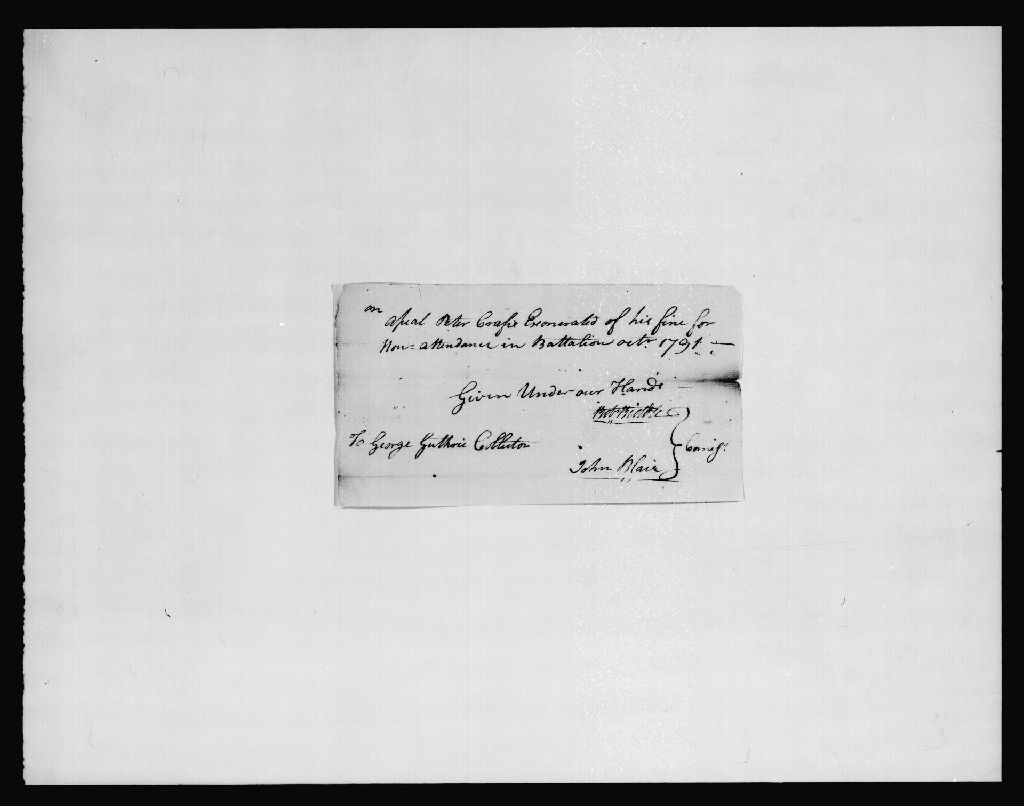 on
Apeal Peter Exonerated of his fine for
Non=attendance in Battalion octr. 1791
Given Under our Hands
To George Guthrie Collector
John Blair